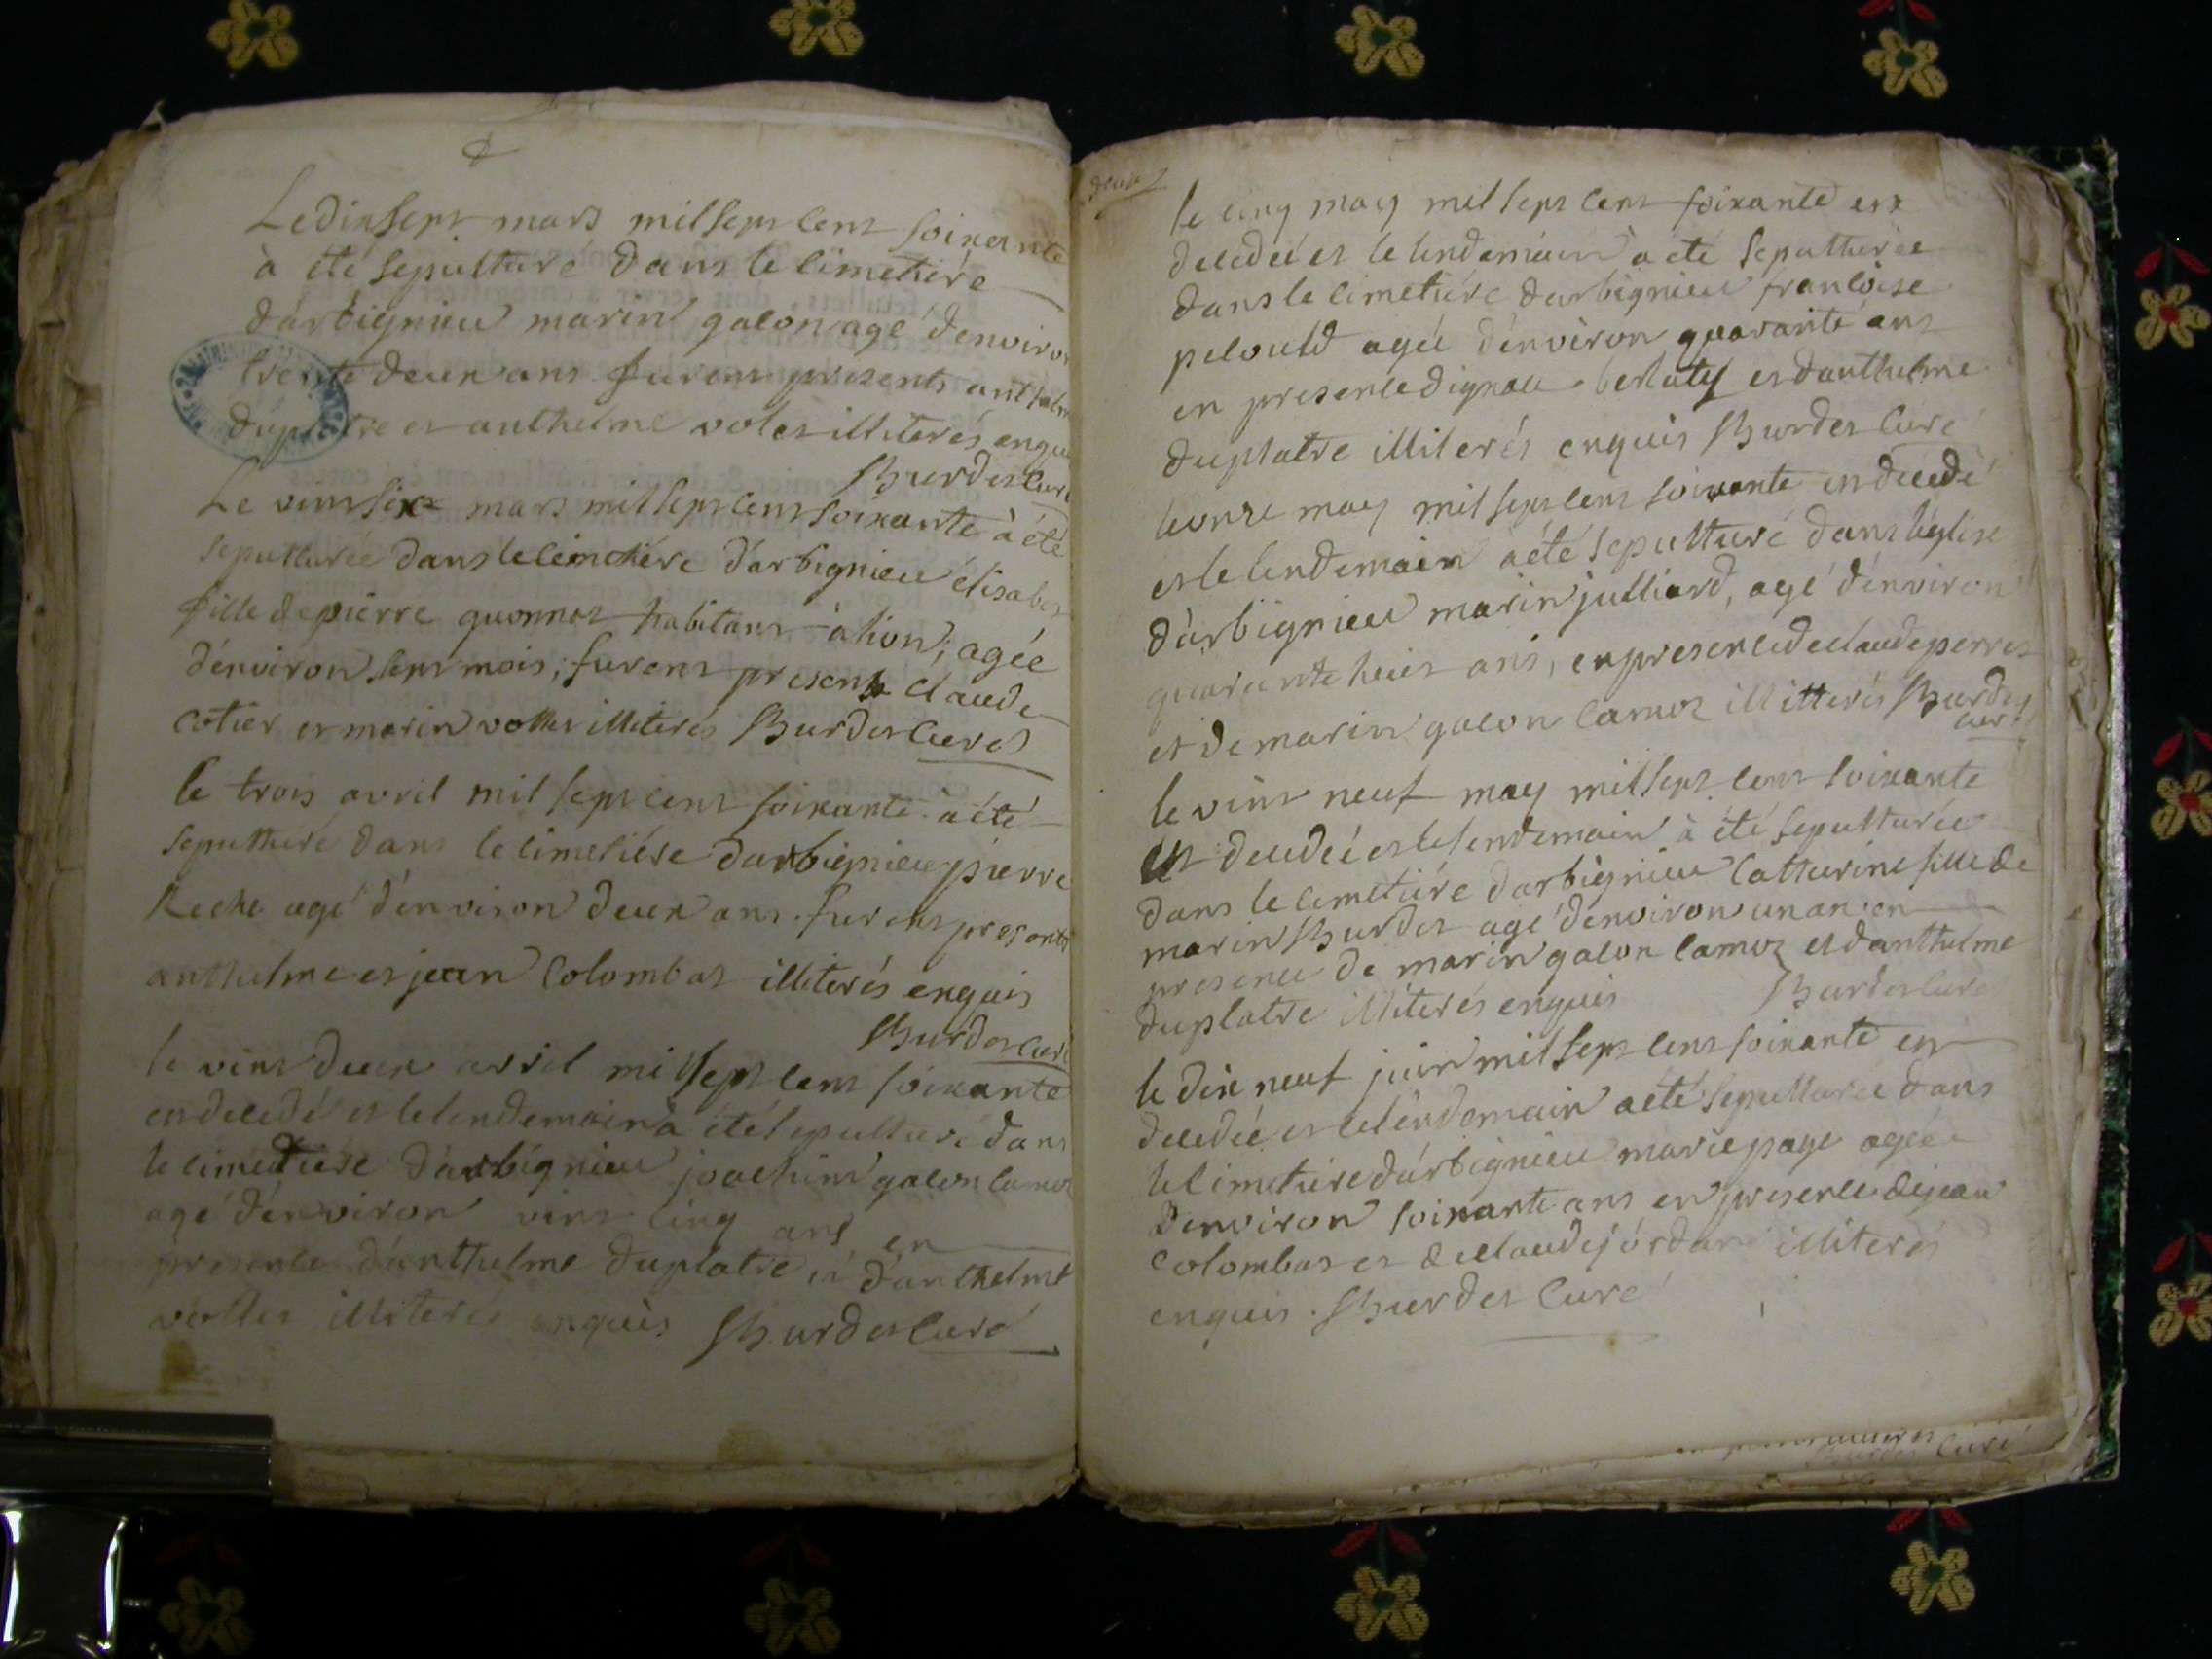 Le dix sept mars mil sept cent soixante
à été sepulturé dans le cimetiére
d'arbignieu marin galon agé d'environ
trente deux ans furent presents anthelme
duplatre et anthelme volet illiterés enquis
Burdet curé
Le vint six mars mil sept cent soixante à été
sepulturée dans le cimetiére d'arbignieu élisabet
fille de pierre quonnot habitant à lion, agée
d'énviron sept mois; furent present claude
cotier et marin vollet illiterés Burdet curé
le trois avril mil sept cent soixante à été
sepulturé dans le cimetiére d'arbignieu pierre
Reche agé d'énviron deux ans. furent presents
anthelme et jean Colombat illiterés enquis
Burdet curé
le vint deux avril mil sept cent soixante
est decedé et le lendemain à été sepulturé dans
le cimetiére d'arbignieu joachim galon camoz
agé d'énviron vint cinq ans en
presence d'anthelme duplatre et d'anthelme
vollet illiterés enquis Burdet curé
deux
le cinq may mil sept cent soixante est
decedée et le lendemain a été sepulturée
dans le cimetiére d'arbignieu francoise
peloud agée d'énviron quarante ans
en presence d'ignace et d'anthelme
duplatre illiterés enquis Burdet curé
le onze may mil sept cent soixante est decedé
et le lendemain a été sepulturé dans l'église
d'arbignieu marin julliard, agé d'énviron
quarante huit ans, en presence de claude perret
et de marin galon camoz illitterés Burdet
curé
le vint neuf may mil sept cent soixante
est decedée et le lendemain à été sepulturée
dans le cimetiére d'arbignieu Catherine fille de
marin Burdet agé d'environ un an en
presence de marin galon camoz et d'anthelme
duplatre illiterés enquis Burdet curé
le dix neuf juin mil sept cent soixante est
decedée et le lendemain a été sepulturée dans
le cimetiére d'arbignieu marie page agée
d'énviron soixante ans en presence de jean
Colombat et de claude jordan illiterés
enquis. Burdet Curé
curé